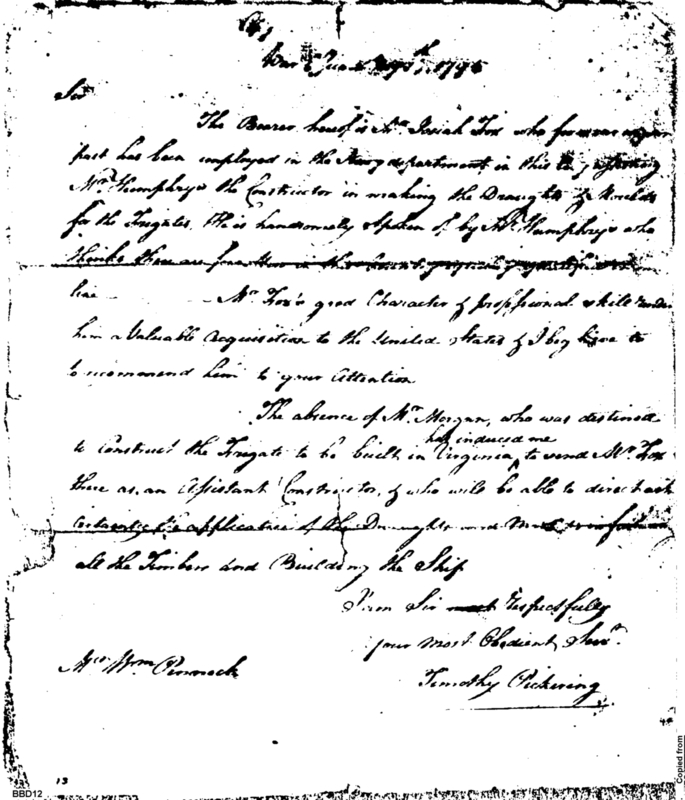 War
1795
Sir
The Bearer hereof is Mr. Josiah Fox who for
past has been employed in the Navy department in this
Mr. Humphrys the Constructor in making the Draughts & Moulds
for the Frigates. He is handsomely Spoken of by Mr. Humphrys who
thinks there are few
line Mr. Fox's good Character & professional skill render
him a Valuable acquisition to the United States & I beg leave to
to recommend him to your Attention
The absence of Mr. Morgan, who was destined
has induced me
to construct the Frigate to be built in Virginia, to send Mr. Fox
there as an Assistant Constructor, & who will be able to direct with
certainty the application of the Draughts and Moulds
all the Timbers and Building the Ship
I am Sir most respectfully
your most Obedient Servt.
Mr. Wm. Pennock
Timothy Pickering
13
BBD12
Copied from